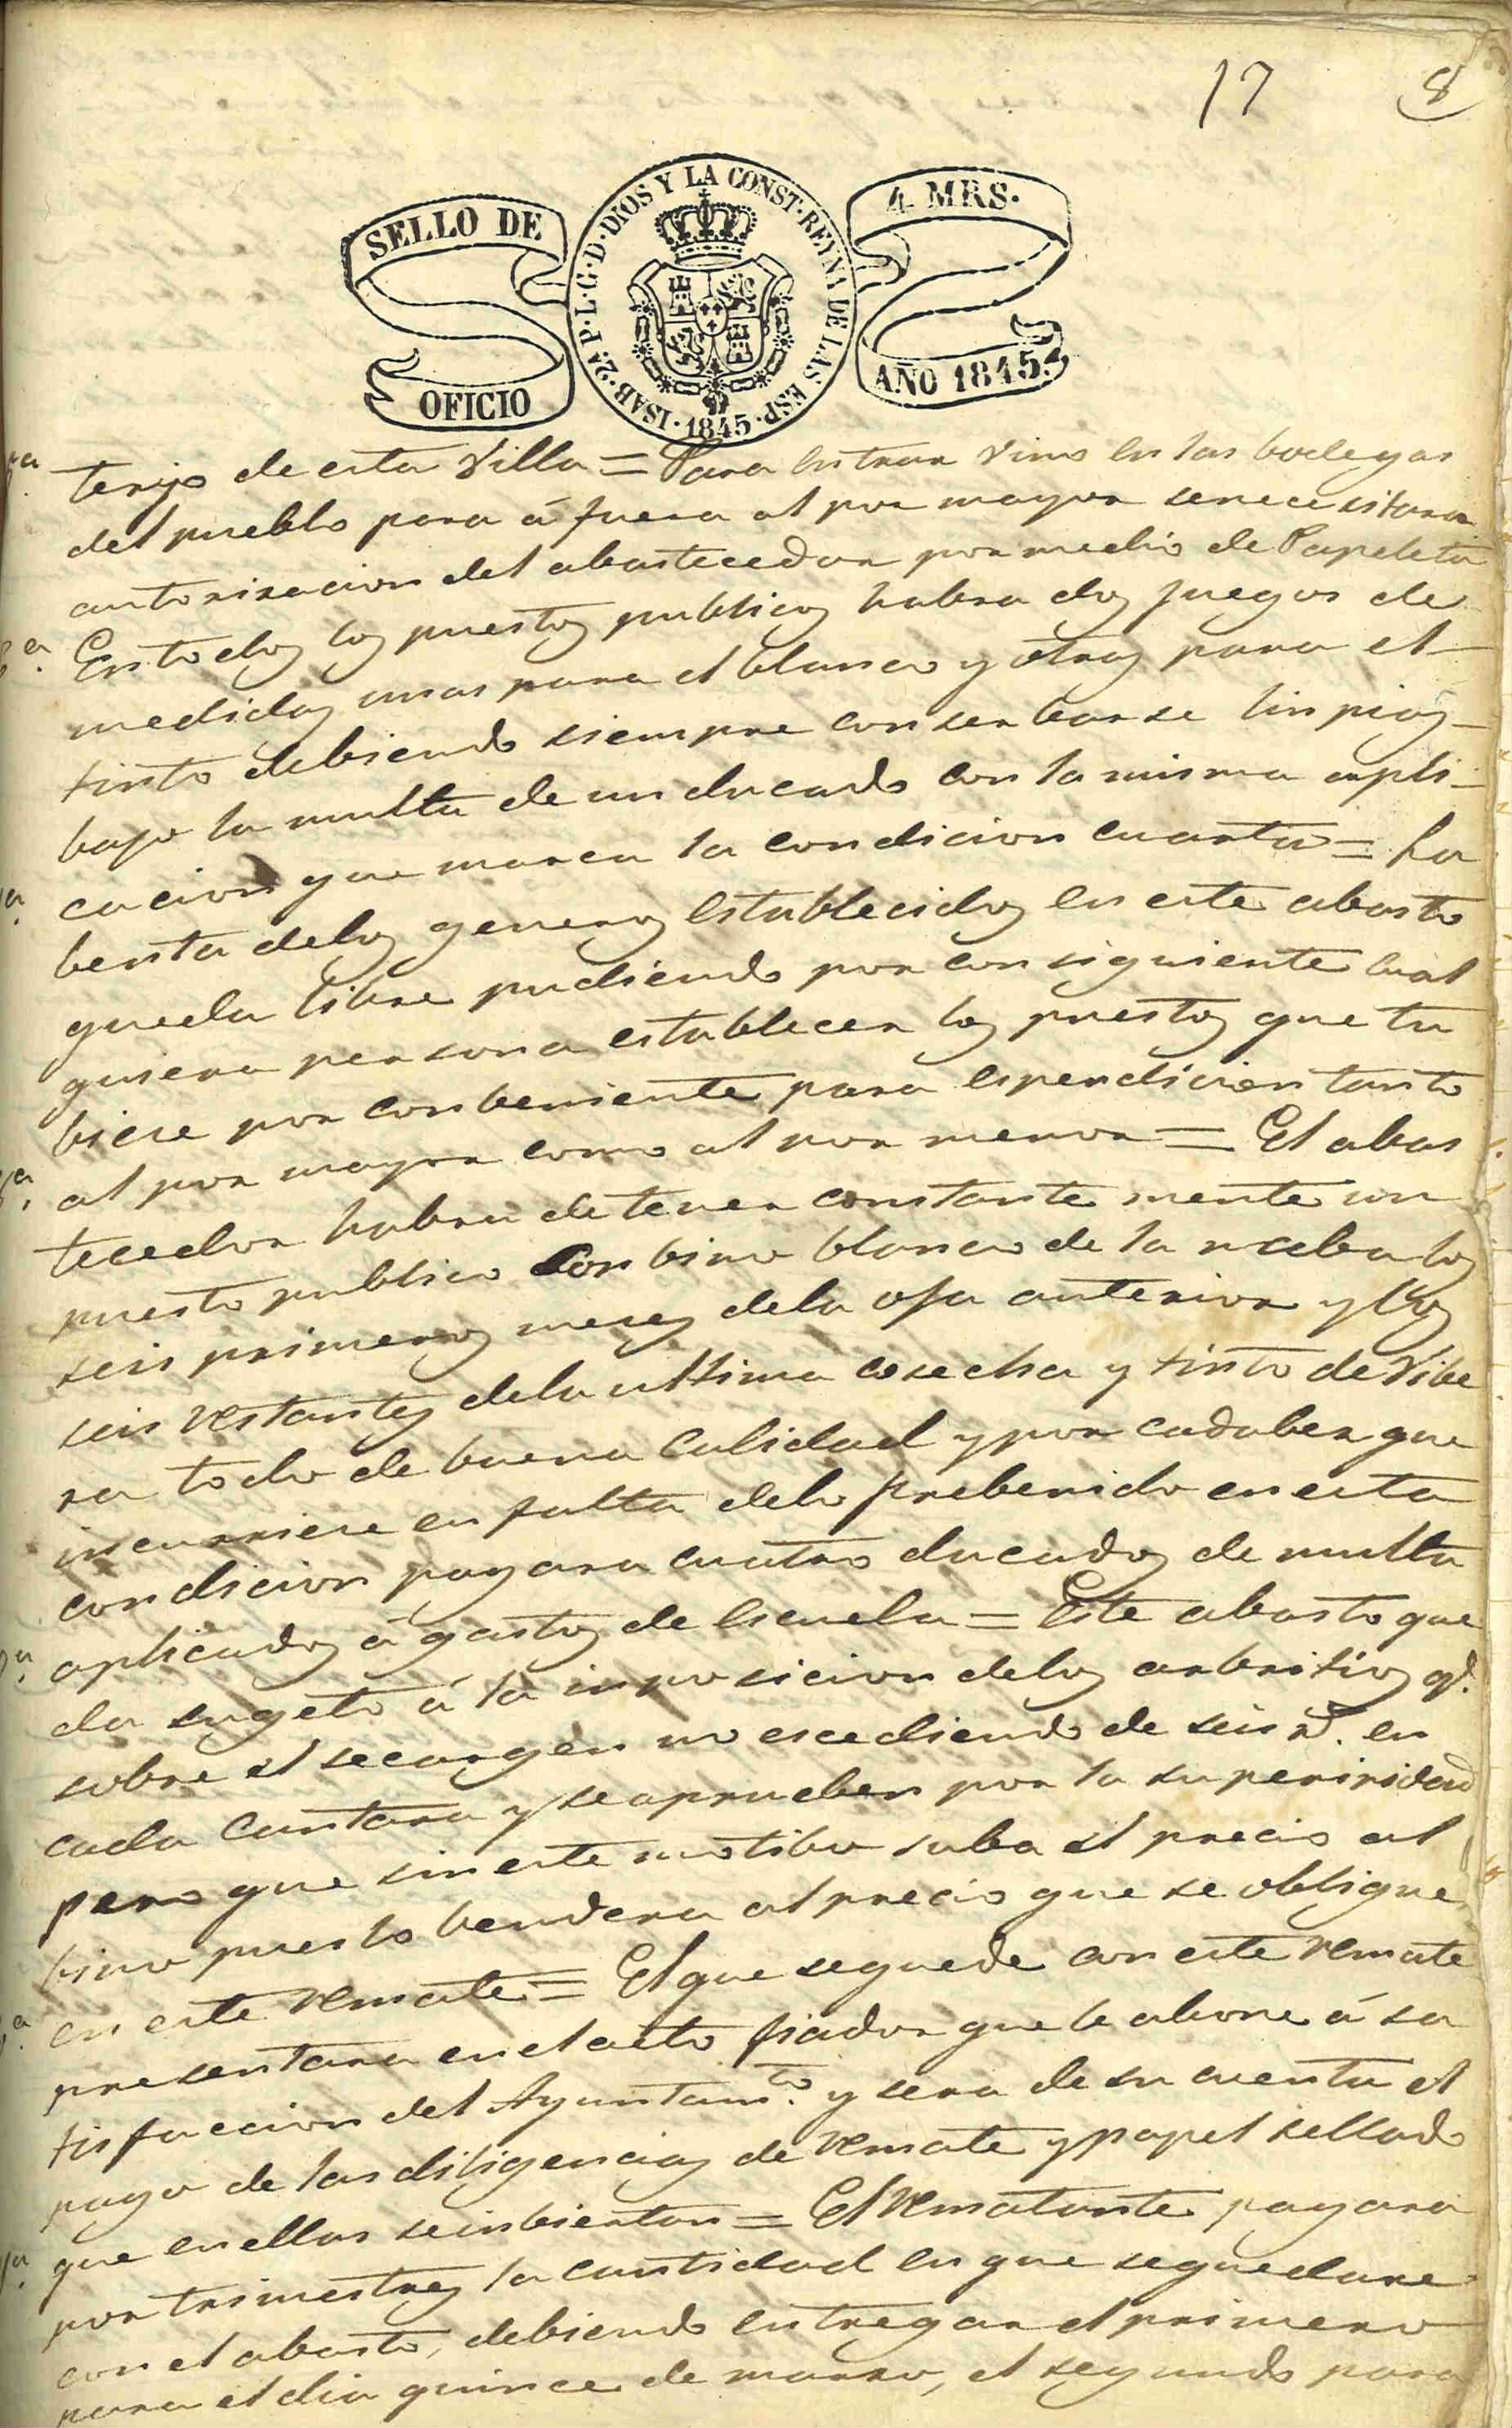 17 8
SELLO DE OFICIO
ISAB·2ª P·L·G·D·DIOS Y LA CONST·REYNA DE LAS ESP·1845·
4 MRS.
AÑO 1845.
terijo de esta Villa = Para entrar Vino en las bodegas
del pueblo para á fuera al por mayor senecesitara
autorisacion del abastecedor por medio de Papeleta
En todos los puestos publicos habra dos juegos de
medidas unas para el blanco y otras para el
tinto debiendo siempre conserbarse linpias
bajo la multa de un ducado con la misma apli-
cacion que marca la condicion cuarta = La
benta delos generos establecidos en este abasto
queda libre pudiendo por consiguiente cual
quiera persona establecer los puestos que tu
biere por conbeniente para espendicion tanto
al por mayor como al por menor = El abas
tecedor habra de tener constante mente un
puesto publico con bino blanco de la los
seis primeros meses dela oja anterior y los
seis restantes dela ultima cosecha y tinto de Ribe
ra todo de buena calidad y por cadabez que
incurriere en falta delo prebenido en esta
condicion pagara cuatro ducados de multa
aplicados á gastos de escuela = Este abasto que
da sugeto á la inposicion delos arbitrios q.e
sobre el secarguen no escediendo de seis r.s en
cada cantara y seaprueben por la superioridad
pero que sin este motibo suba el precio al
bino pues lo bendera al precio que se obligue
en este remate = El que sequede con este remate
presentara en el acto fiador que le abone á sa
tisfaccion del Ayuntam.to y sera de su cuenta el
pago de las diligencias de remate y papel sellado
que en ellas seinbiertan = El rematante pagara
por trimestres la cantidad en que sequedare
con el abasto, debiendo entregar el primero
para el dia quince de marzo, el segundo para